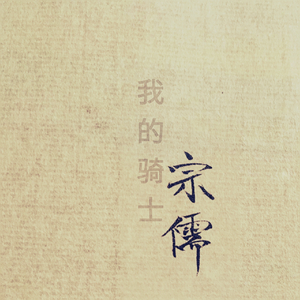 我的骑士
宗儒